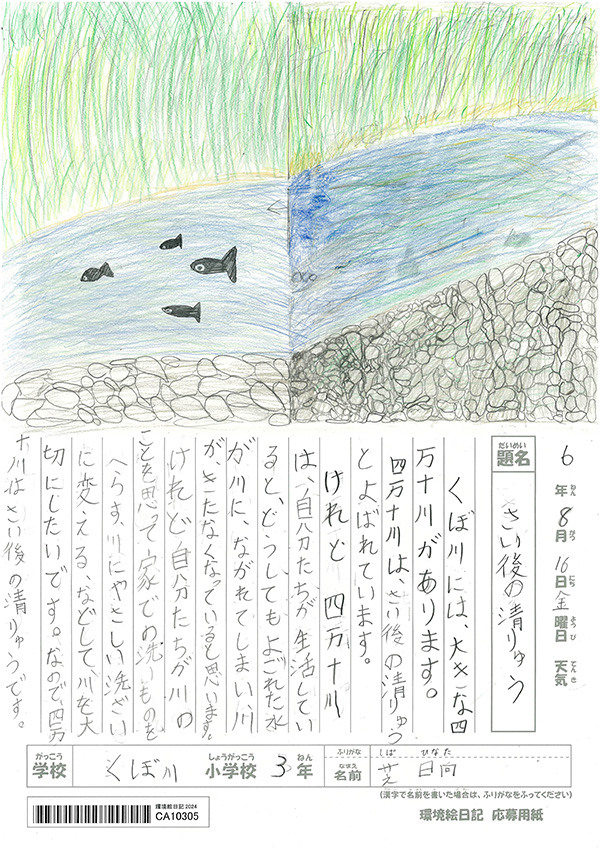 6年8月16日金曜日 天気
ねん がつ にち ようび てんき
だいめい
題名 さい後の清りゅう
くぼ川には、大きな四
万十川があります。
四万十川は、さい後の清りゅう
とよばれています。
けれど 四万十川
は、自分たちが生活してい
ると、どうしてもよごれた水
が川に、ながれてしまい、川
が、きたなくなっていると思います。
けれど自分たちが川の
ことを思って家での洗いものを
へらす、川にやさしい洗ざい
に変える、などして、川を大
切にしたいです。なので、四万
十川はさい後の清りゅうです。
がっこう しょうがっこう ねん
学校 くぼ川 小学校 3年
ふりがな しば ひなた
なまえ
名前 芝 日向
(漢字で名前を書いた場合は、ふりがなをふってください)
環境絵日記 2024
CA10305
環境絵日記 応募用紙